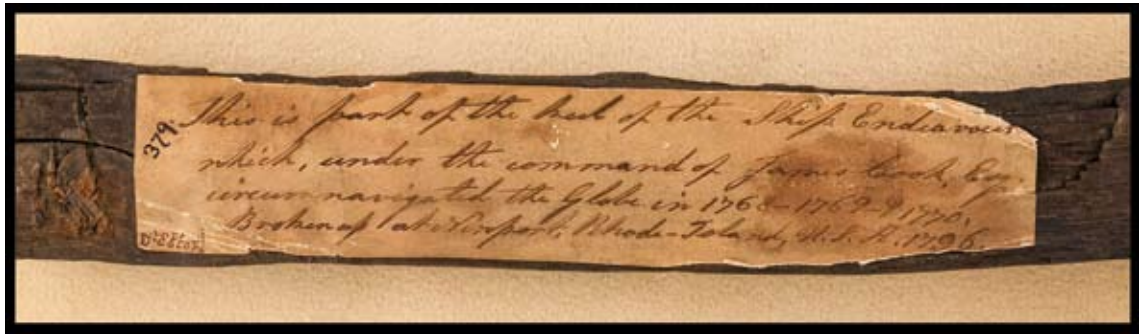 379.
This is part of the keel of the Ship Endeavour
which, under the command of James Cook, Esq.
circumnavigated the Globe in 1768-1769-& 1770.
Broken up at Newport, Rhode-Island, U.S.A. 1796.